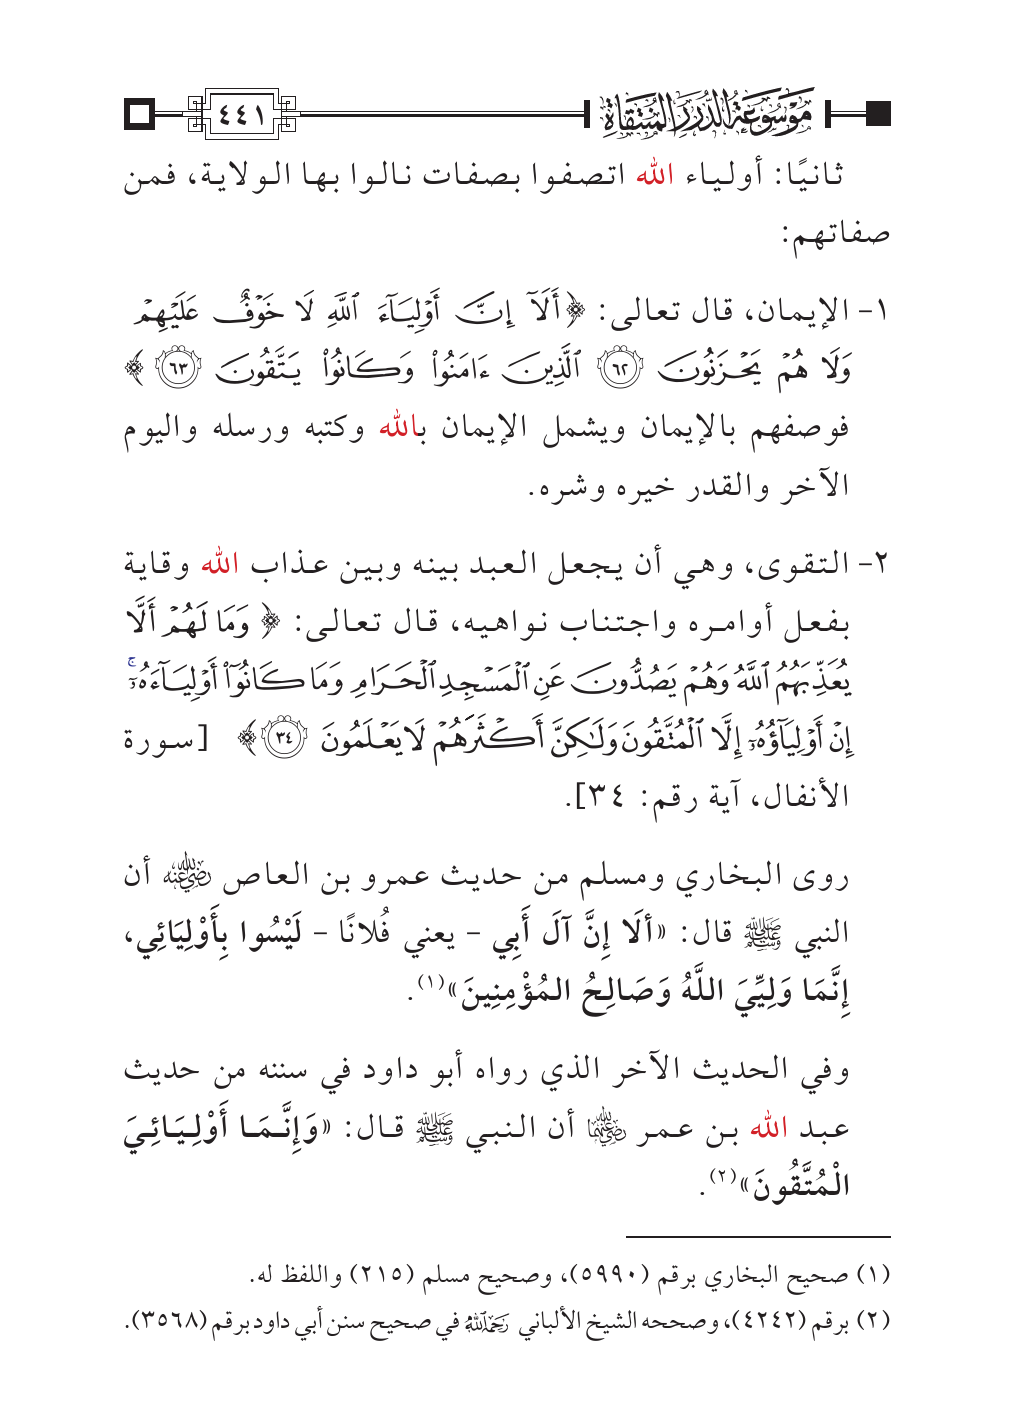 موسوعة الدرر المنتقاة ٤٤١
ثانيًا: أولياء الله اتصفوا بصفات نالوا بها الولاية، فمن
صفاتهم:
١- الإيمان، قال تعالى: ﴿أَلَآ إِنَّ أَوْلِيَآءَ ٱللَّهِ لَا خَوْفٌ عَلَيْهِمْ
وَلَا هُمْ يَحْزَنُونَ ٦٢ ٱلَّذِينَ ءَامَنُوا۟ وَكَانُوا۟ يَتَّقُونَ ٦٣﴾
فوصفهم بالإيمان ويشمل الإيمان بالله وكتبه ورسله واليوم
الآخر والقدر خيره وشره.
٢- التقوى، وهي أن يجعل العبد بينه وبين عذاب الله وقاية
بفعل أوامره واجتناب نواهيه، قال تعالى: ﴿وَمَا لَهُمْ أَلَّا
يُعَذِّبَهُمُ ٱللَّهُ وَهُمْ يَصُدُّونَ عَنِ ٱلْمَسْجِدِ ٱلْحَرَامِ وَمَا كَانُوٓا۟ أَوْلِيَآءَهُۥٓ ۚ
إِنْ أَوْلِيَآؤُهُۥٓ إِلَّا ٱلْمُتَّقُونَ وَلَٰكِنَّ أَكْثَرَهُمْ لَا يَعْلَمُونَ ٣٤﴾ [سورة
الأنفال، آية رقم: ٣٤].
روى البخاري ومسلم من حديث عمرو بن العاص رضي الله عنه أن
النبي ﷺ قال: «ألَا إِنَّ آلَ أَبِي - يعني فُلانًا - لَيْسُوا بِأَوْلِيَائِي،
إِنَّمَا وَلِيِّيَ اللَّهُ وَصَالِحُ المُؤْمِنِينَ»(١).
وفي الحديث الآخر الذي رواه أبو داود في سننه من حديث
عبد الله بن عمر رضي الله عنهما أن النبي ﷺ قال: «وَإِنَّمَا أَوْلِيَائِيَ
الْمُتَّقُونَ»(٢).
(١) صحيح البخاري برقم (٥٩٩٠)، وصحيح مسلم (٢١٥) واللفظ له.
(٢) برقم (٤٢٤٢)، وصححه الشيخ الألباني رحمه الله في صحيح سنن أبي داود برقم (٣٥٦٨).